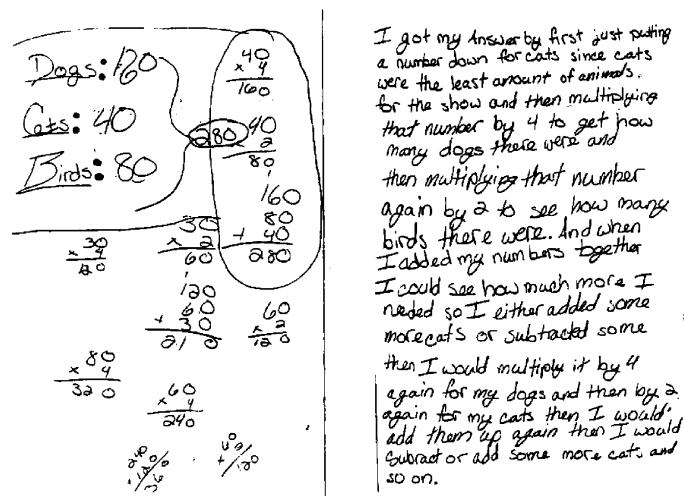 Dogs: 160
Cats: 40
Birds: 80
280
40
x 4
160
40
x 2
80
1
160
80
+ 40
280
30
x 4
120
30
x 2
60
1
120
60
+ 30
210
60
x 2
120
80
x 4
320
60
x 4
240
I got my Answer by first just putting
a number down for cats since cats
were the least amount of animals.
for the show and then multiplying
that number by 4 to get how
many dogs there were and
then multiplying that number
again by 2 to see how many
birds there were. And when
I added my numbers together
I could see how much more I
needed so I either added some
more cats or subtracted some
then I would multiply it by 4
again for my dogs and then by 2
again for my cats then I would
add them up again then I would
Subtract or add some more cats and
so on.